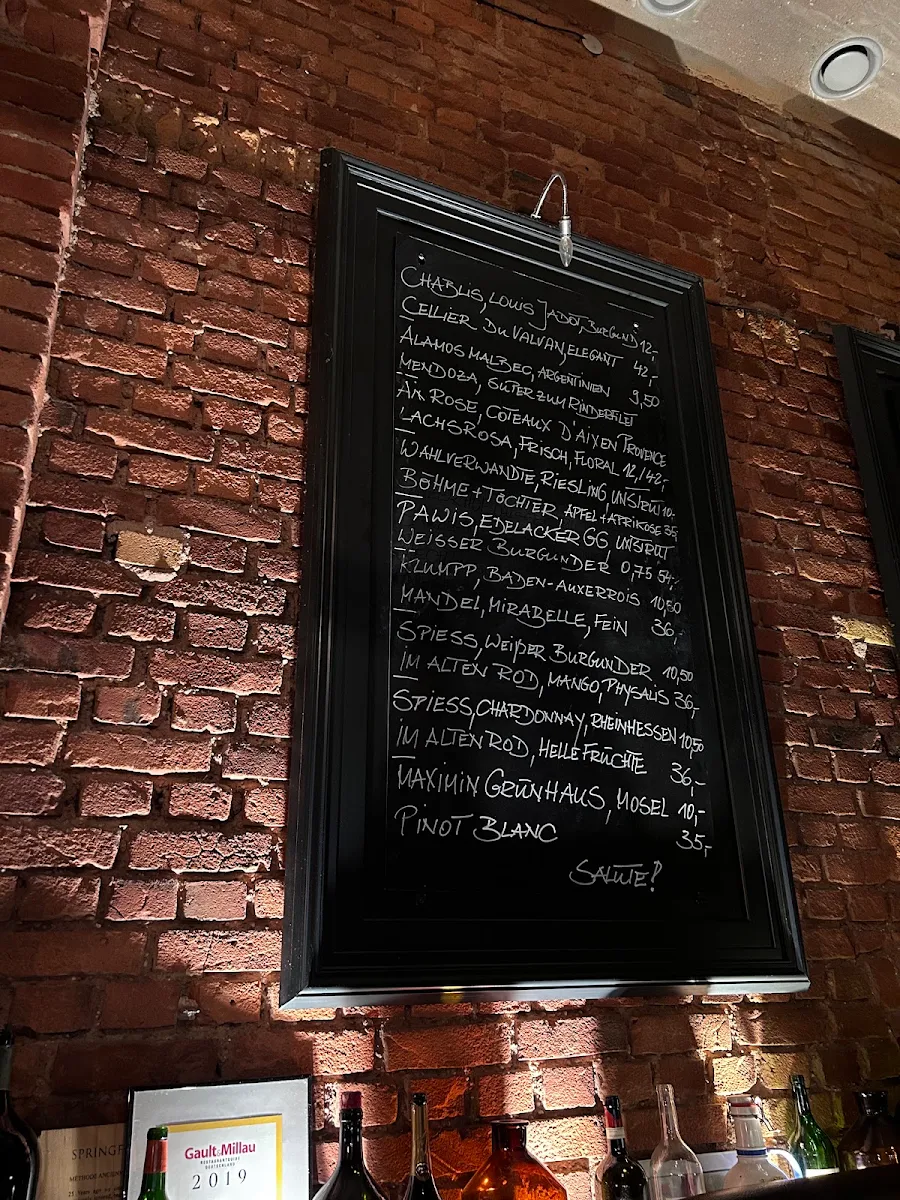 CHABLIS, LOUIS JADOT, BURGUND 12,-
CELLIER DU VALVAN, ELEGANT 42,-
ALAMOS MALBEC, ARGENTINIEN 9,50
MENDOZA, GUTER ZUM RINDERFILET
AIX ROSE, COTEAUX D'AIX EN PROVENCE
LACHSROSA, FRISCH, FLORAL 12,/42,-
WAHLVERWANDTE, RIESLING, UNSTRUT 10,-
BÖHME + TÖCHTER, APFEL + APRIKOSE 35
PAWIS, EDELACKER GG, UNSTRUT
WEISSER BURGUNDER 0,75 54,-
KLUMPP, BADEN-AUXERROIS 10,50
MANDEL, MIRABELLE, FEIN 36,-
SPIESS, WEIßER BURGUNDER 10,50
IM ALTEN ROD, MANGO, PHYSALIS 36,-
SPIESS, CHARDONNAY, RHEINHESSEN 10,50
IM ALTEN ROD, HELLE FRÜCHTE 36,-
MAXIMIN GRÜNHAUS, MOSEL 10,-
PINOT BLANC 35,-
SALUTE!
SPRINGF
Gault&Millau
RESTAURANTGUIDE
DEUTSCHLAND
2019